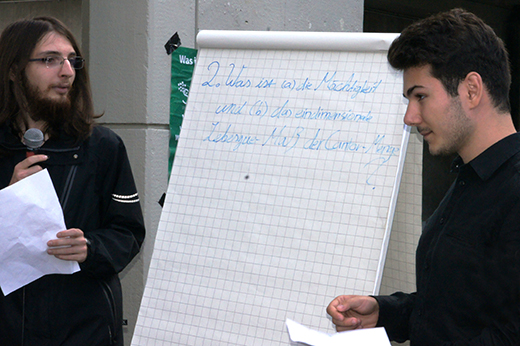 Was
2. Was ist (a) die Mächtigkeit
und (b) das eindimensionale
Lebesgue-Maß der Cantor-Menge
?